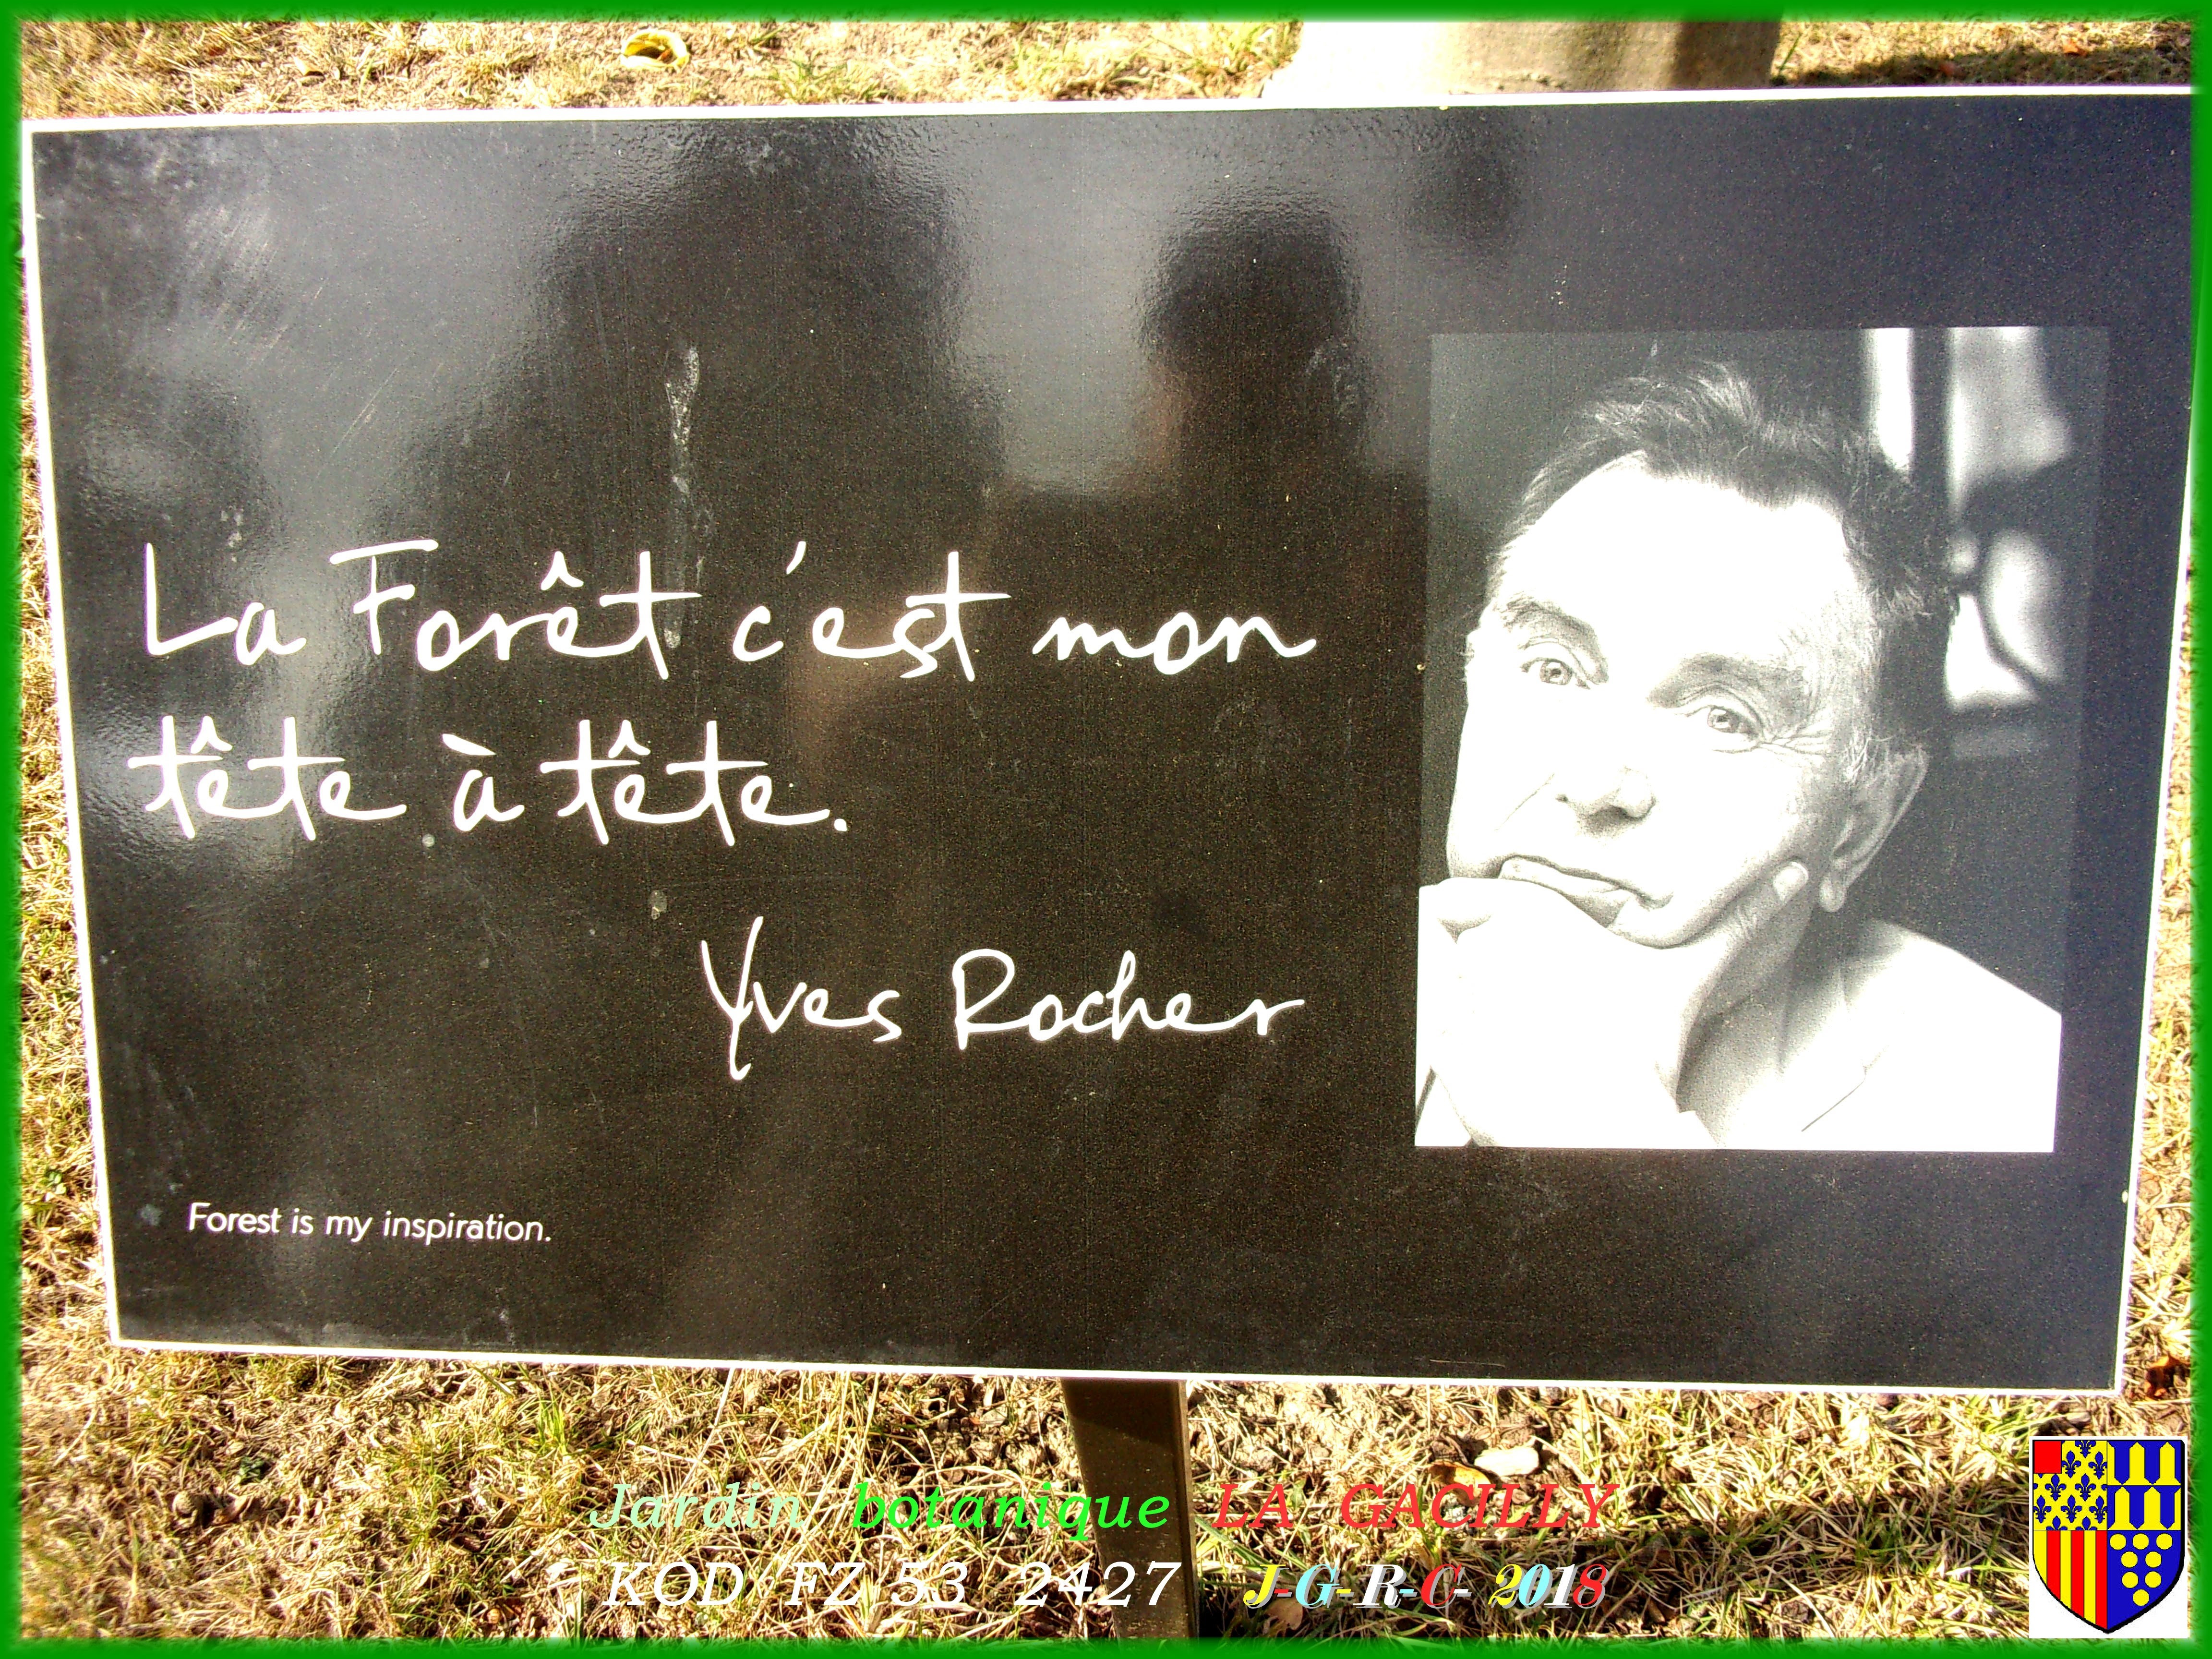 La Forêt c'est mon
tête à tête.
Yves Rocher
Forest is my inspiration.
Jardin botanique LA GACILLY
KOD FZ 53 2427 J-G-R-C- 2018